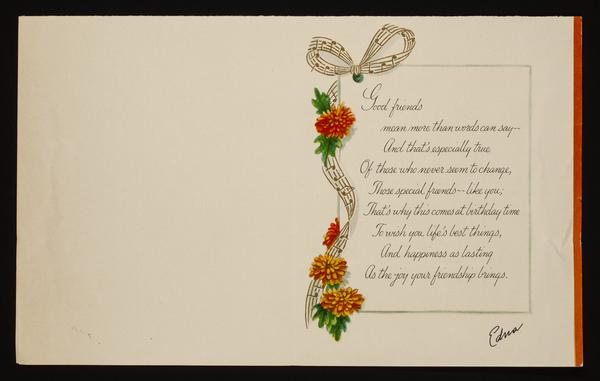 Good friends
mean more than words can say—
And that's especially true
Of those who never seem to change,
Those special friends--like you;
That's why this comes at birthday time
To wish you life's best things,
And happiness as lasting
As the joy your friendship brings.
Edna